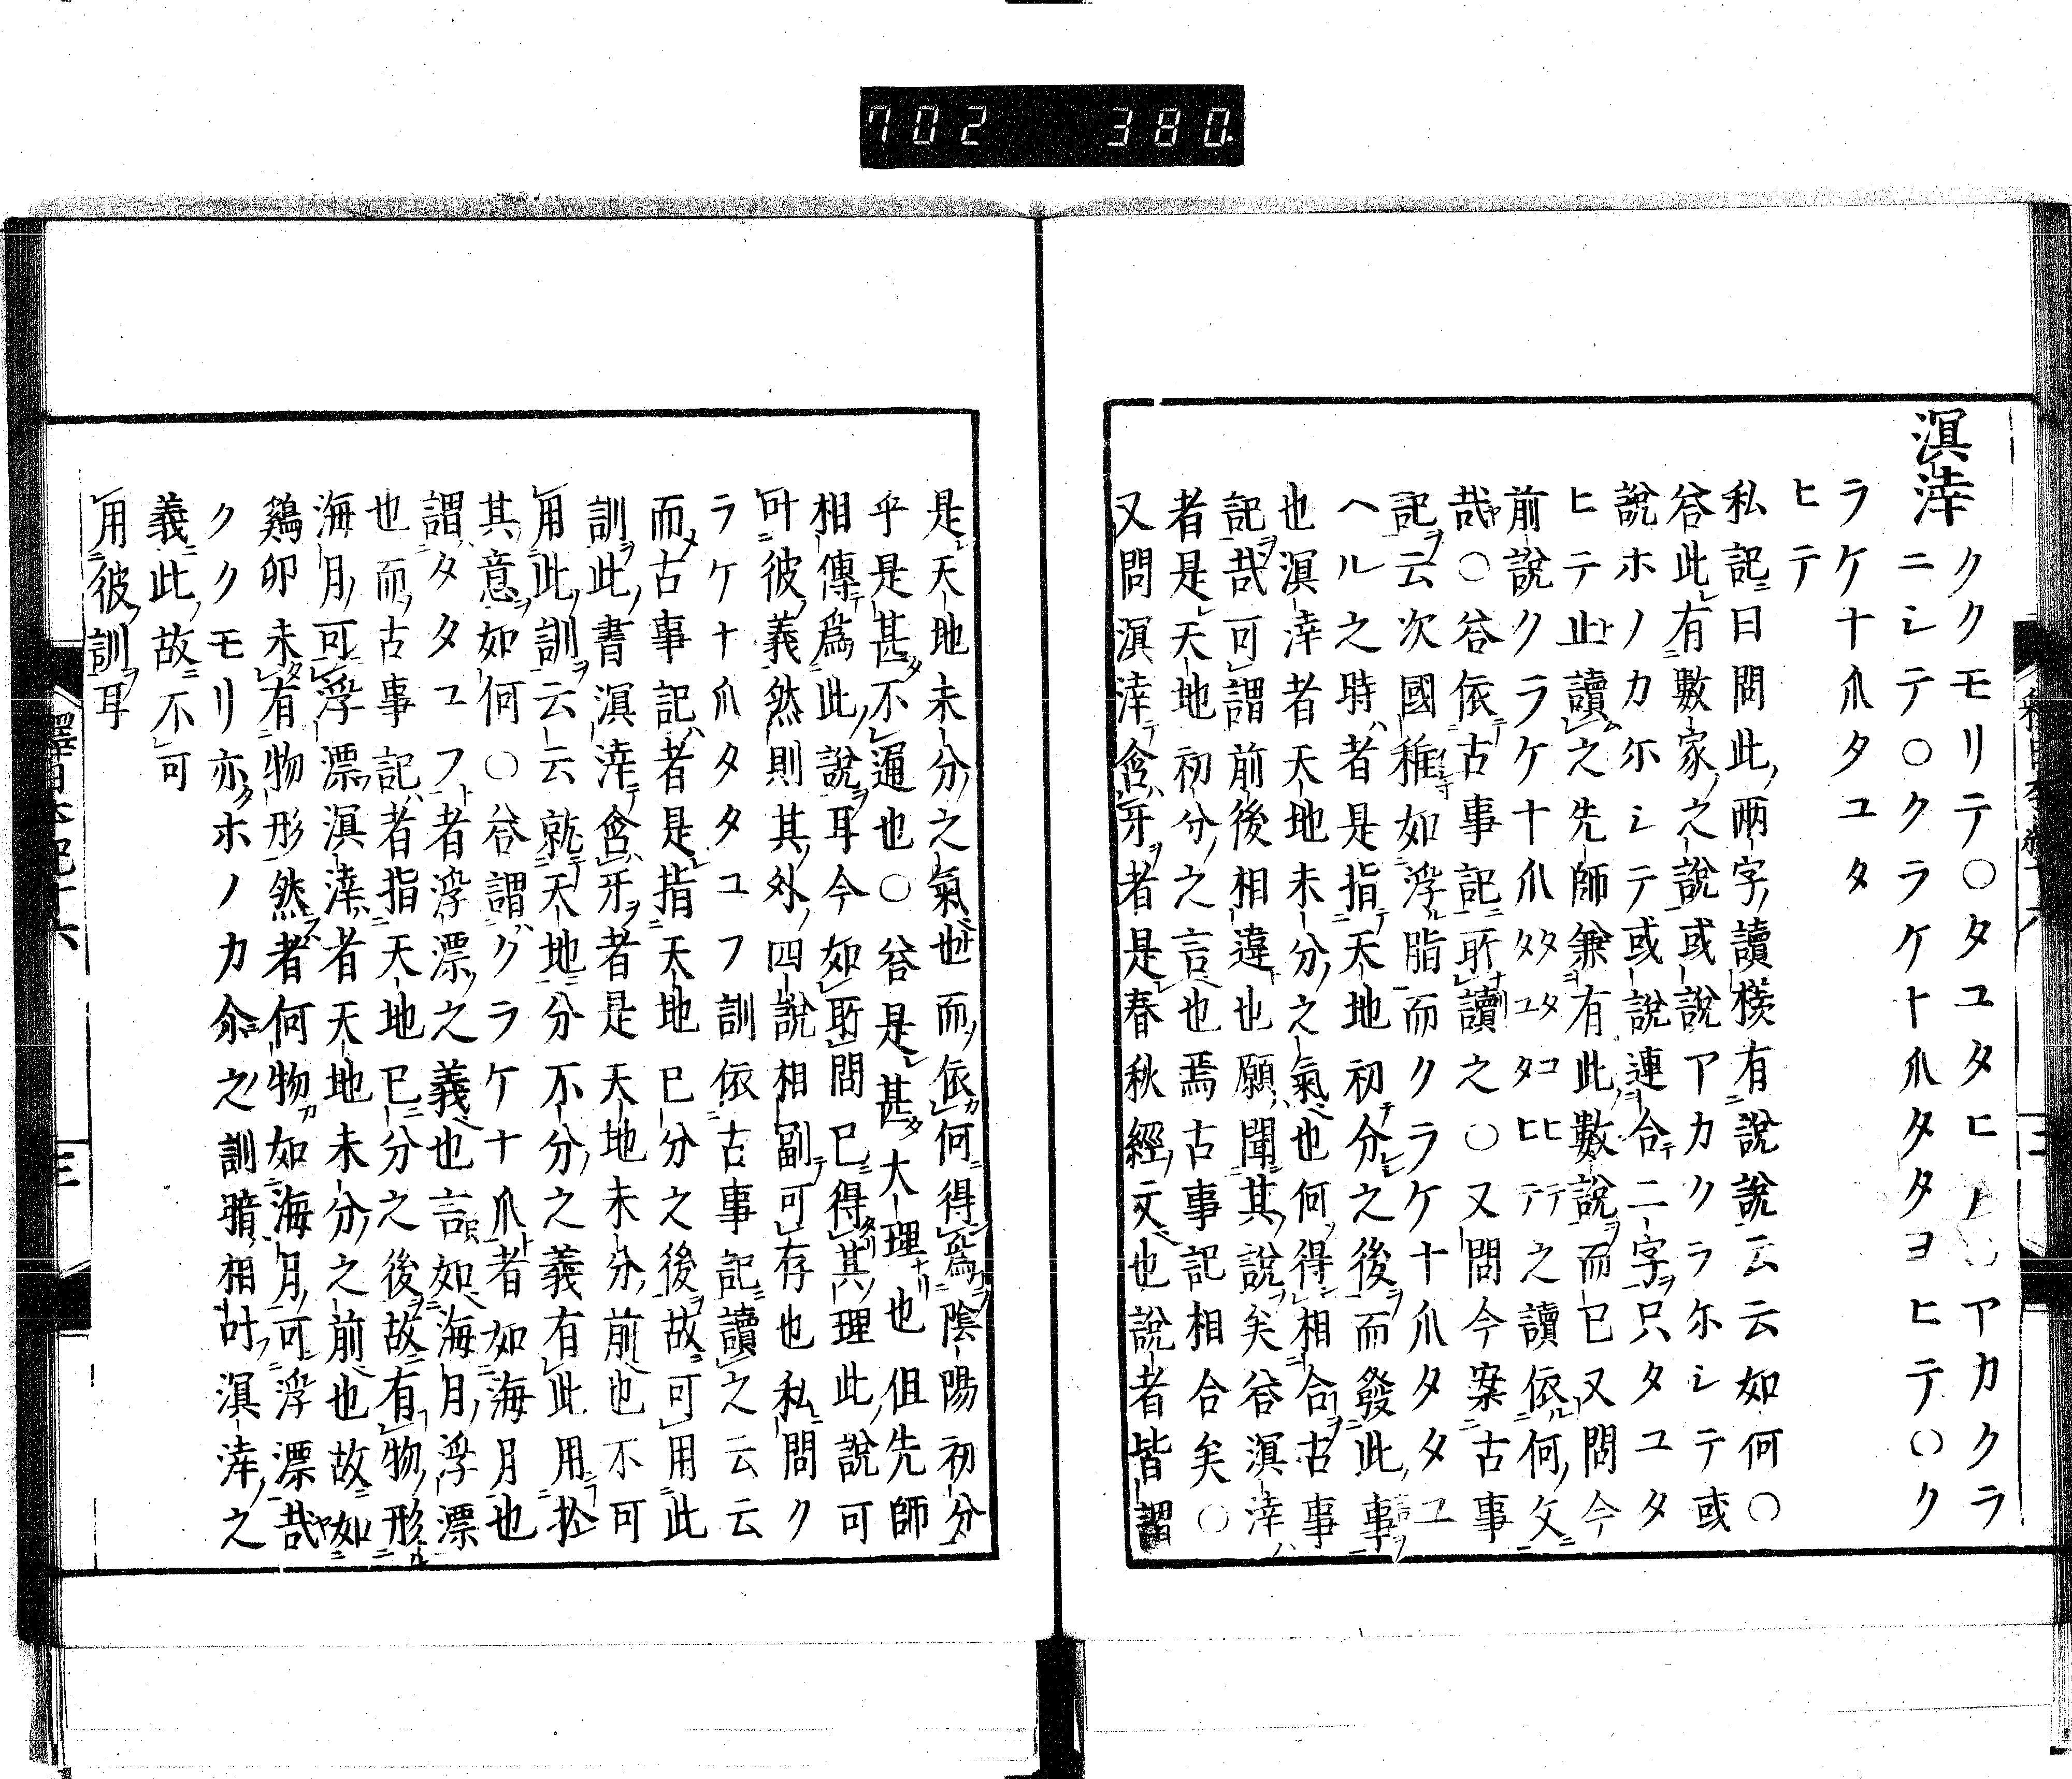 702 380
溟涬 ククモリテ○タユタヒ アカクラ
ニシテ○クラケナスタタヨヒテ○ク
ラケナスタユタ
ヒテ
私記曰問此兩字讀樣有說說云云如何○
答此有數家之說或說アカクラシテ或
說ホノカ尓シテ或說連合二字只タユタ
ヒテ止讀之先師兼有此數說而已又問今
前說クラケナスタタユタヒテ之讀依何文
哉○答依古事記所讀之○又問今案古事
記云次國稚如浮脂而クラケナスタタユ
ヘル之時者是指天地初分之後而發此事
也溟涬者天地未分之氣也何得相合古事
記哉可謂前後相違也願聞其說矣答溟涬
者是天地初分之言也焉古事記相合矣○
又問溟涬含牙者是春秋經文也說者皆謂
是天地未分之氣也而依何得爲陰陽初分
乎是甚不通也○答是甚大理也但先師
相傳爲此說耳今如所問已得其理此說可
叶彼義然則其外四說相副可存也私問ク
ラケナスタタユフ訓依古事記讀之云云
而古事記者是指天地已分之後故可用此
訓此書溟涬含牙者是天地未分前也不可
用此訓云云就天地分不分之義有此用捨
其意如何○答謂クラケナス者如海月也
謂タタユフ者浮漂之義也言如海月浮漂
也而古事記者指天地已分之後故有物形
海月可浮漂溟涬者天地未分之前也故如
鷄卵未有物形然者何物如海月可浮漂哉
ククモリ亦ホノカ尒之訓暗相叶溟涬之
義此故不可
用彼訓耳
釋日本紀十六 三